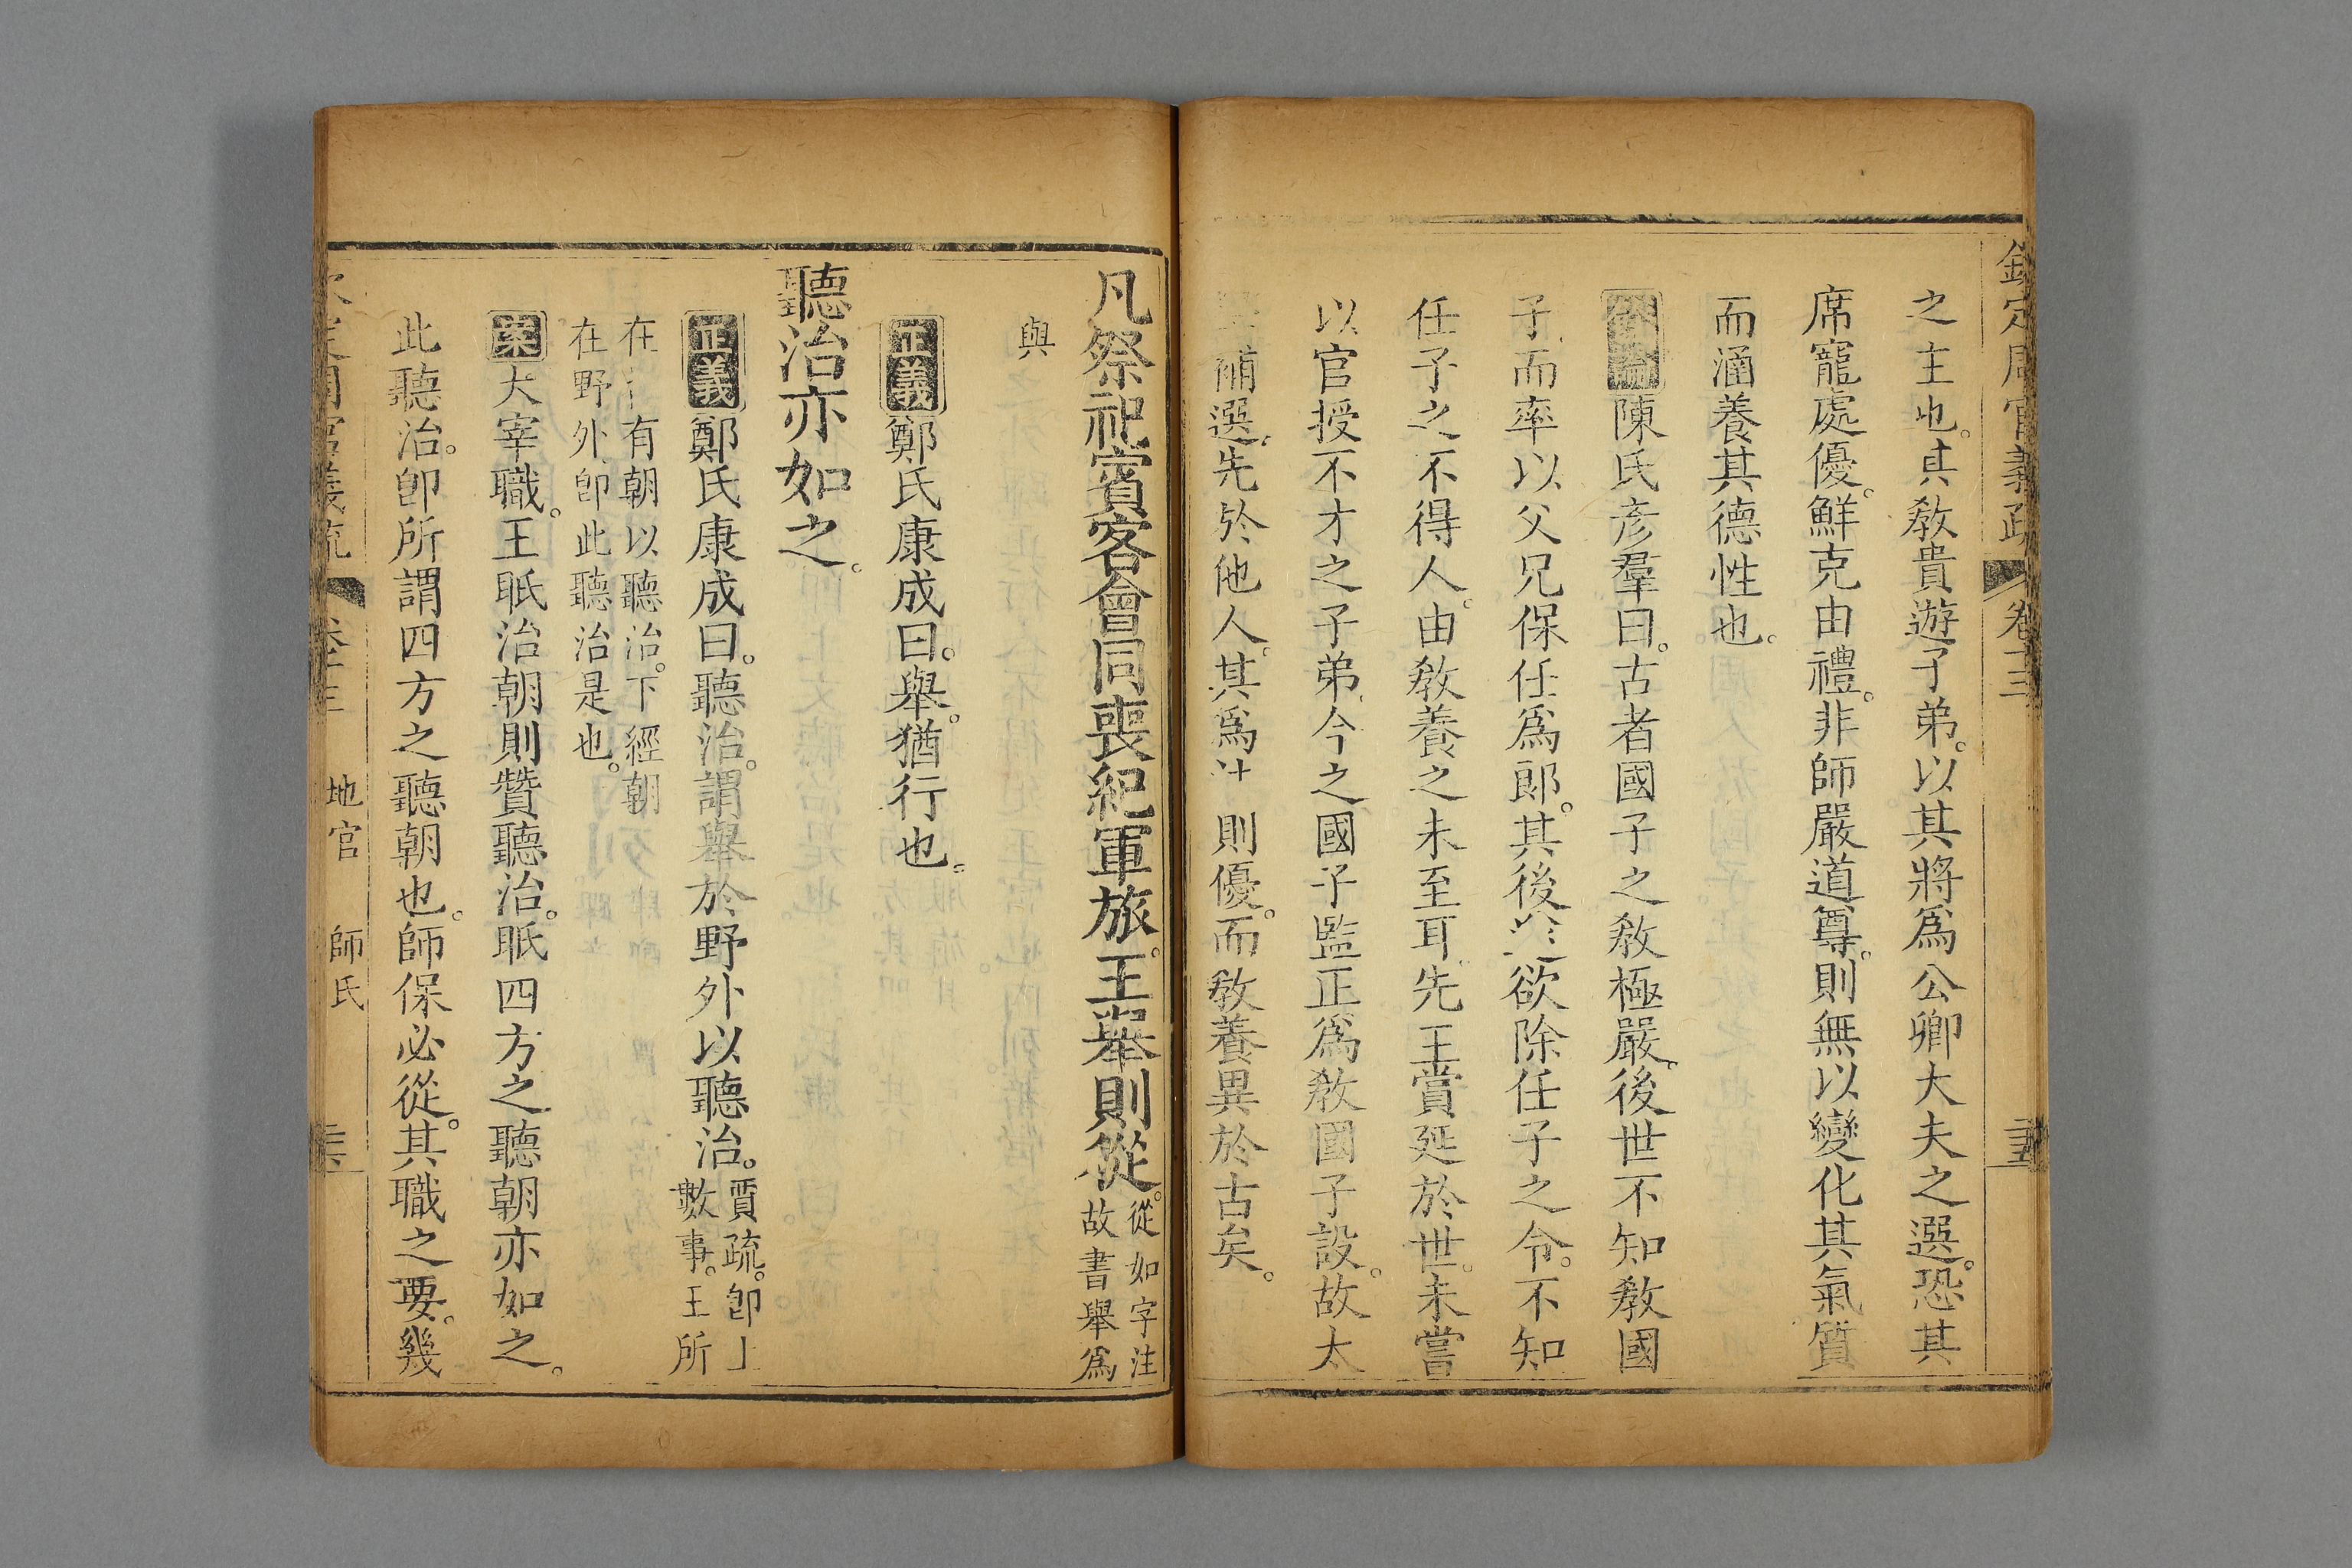 欽定周官義疏 卷十三 三五
之主也其教貴遊子弟以其將爲公卿大夫之選恐其
席寵處優鮮克由禮非師嚴道尊則無以變化其氣質
而涵養其德性也
陳氏彦羣曰古者國子之教極嚴後世不知教國
子而率以父兄保任爲郎其後欲除任子之令不知
任子之不得人由教養之未至耳先王賞延於世未嘗
以官授不才之子弟今之國子監正爲教國子設故太
補選先於他人其爲 則優而教養異於古矣
凡祭祀賓客會同喪紀軍旅王舉則從從如字注
故書舉爲
與
正義鄭氏康成曰舉猶行也
聽治亦如之
正義鄭氏康成曰聽治謂舉於野外以聽治賈疏卽上
數事王所
在 有朝以聽治下經朝
在野外卽此聽治是也
案大宰職王眡治朝則贊聽治眡四方之聽朝亦如之
此聽治卽所謂四方之聽朝也師保必從其職之要幾
周官義疏 卷十三 地官 師氏